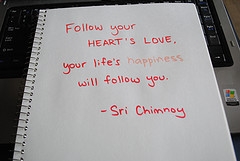 Follow your
HEART'S LOVE,
your life's happiness
will follow you.
- Sri Chinmoy